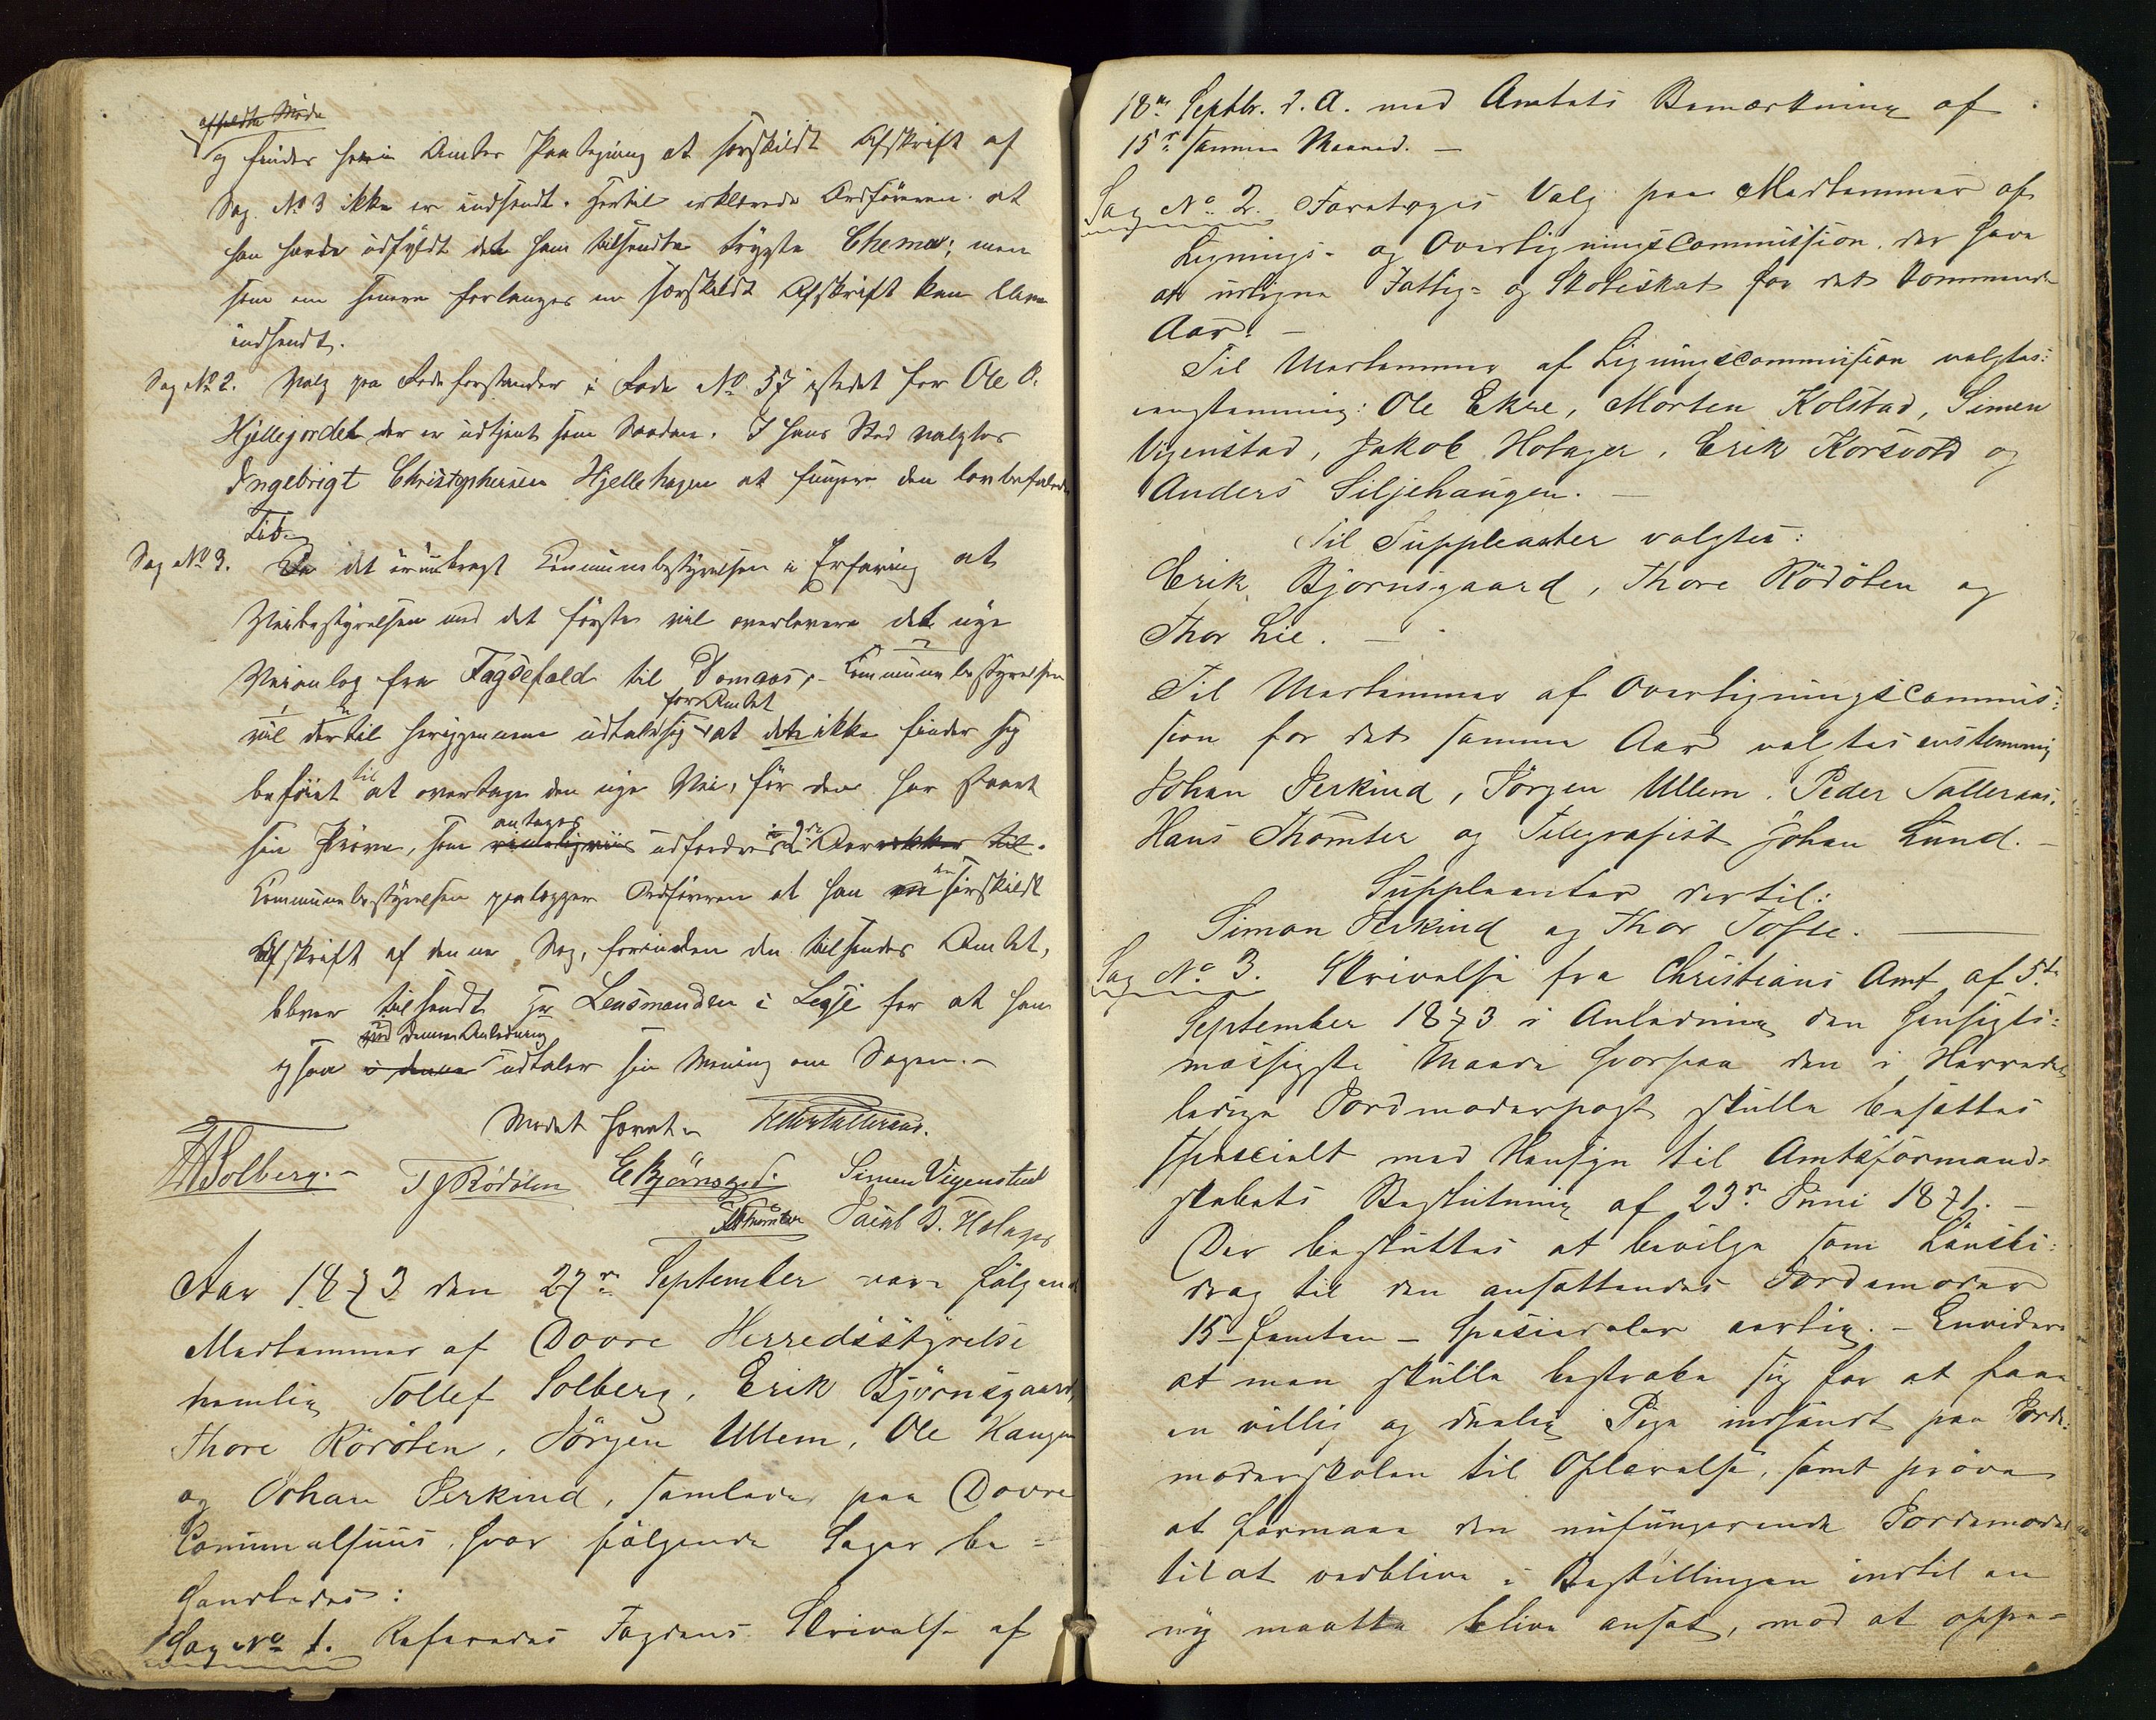 afholdte Møde
og findes heri Amtes Paategning at særskildt Afskrift af
Sag No 3 ikke er indsendt. Hertil erklærede Ordføreren at
han havde udfyldt det ham tilsendte trygte Chema; men
som om senere forlanges en særskildt Afskrift kan blive
indsendt.
Sag No 2. Valg paa Rodeforstander i Rode No 57 istedet for Ole O.
Hjellejordet der er udtjent som Saadan. I hans Sted valgtes
Ingebrigt Christophersen Hjellehagen at fungere den lovbefalede
Tid.
Sag No 3. Da det er indbragt Communebestyrelsen i Erfaring at
Veibestyrelsen med det første vil overlevere det nye
Veianlæg fra Tagsefald til Domaas, Communebestyrelsen
for Amtet
vil dertil herigjennem udtale sig at det ikke finder sig
beføiet til at overtage den nye Vei, før den har staaet
antages
sin Prøve, som rimeligviis udfordres i 2de Aar
Communebestyrelsen paalægger Ordføreren at han en særskildt
Afskrift af denne Sag, forinden den tilsendes Amtet,
bliver tilsendt Hr Lensmanden i Lesje for at han
ved denne Anledning
ogsaa i denne udtaler sin Mening om Sagen.-
Mødet hævet.
TTSolberg.- TJRødølen EBjørnsgrd. Simen Vigenstad
Jacob D. Holager
Aar 1873 den 27de September vare følgende
Medlemmer af Dovre Herredsstyrelse
nemlig Tollef Solberg, Erik Bjørnsgaard,
Thore Rødølen, Jørgen Ullem, Ole Haugen
og Johan Jerkind, samlede paa Dovre
Communalhuus, hvor følgende Sager be-
handledes:
Sag No 1. Refereredes Fogdens Skrivelse af
18de Septbr. d. A. med Amtets Bemærkning af
15de samme Maaned. -
Sag No 2. Foretoges Valg paa Medlemmer af
Lignings- og OverligningsCommission, der have
at udligne Fattig- og Skoleskat for det kommende
Aar. -
Til Medlemmer af Ligningscommission valgtes
eenstemmig: Ole Ekre, Morten Kolstad, Simen
Vigenstad, Jakob Holager, Erik Korsvold og
Anders Siljehaugen. -
Til Suppleanter valgtes:
Erik Bjørnsgaard, Thore Rødølen og
Thor Lie. -
Til Medlemmer af OverligningsCommis-
sion for det samme Aar valgtes enstemmig
Johan Jerkind, Jørgen Ullem, Peder Talleraas,
Hans Thømter og Telegrafist Johan Lund. -
Suppleanter dertil:
Simon Jerkind og Thor Tofte.
Sag No 3. Skrivelse fra Christians Amt af 5te
September 1873 i Anledning den hensigts-
mæssigste Maade hvorpaa den i Herredet
ledige Jordmoderpost skulle besættes
specielt med Hensyn til Amtsformand-
skabets Beslutning af 23de Juni 1871. -
Der besluttes at bevilge som Lønsbi-
drag til den ansættendes Jordemoder
15 - femten - Speciedaler aarlig. - Envidere
at man skulle bestræbe sig for at faae
en villig og duelig Pige indsendt paa Jorde-
moderskolen til Oplærelse, samt prøve
at formaae den nufungerende Jordemoder
til at vedblive i Bestillingen indtil en
ny maatte blive ansat, mod at oppe-